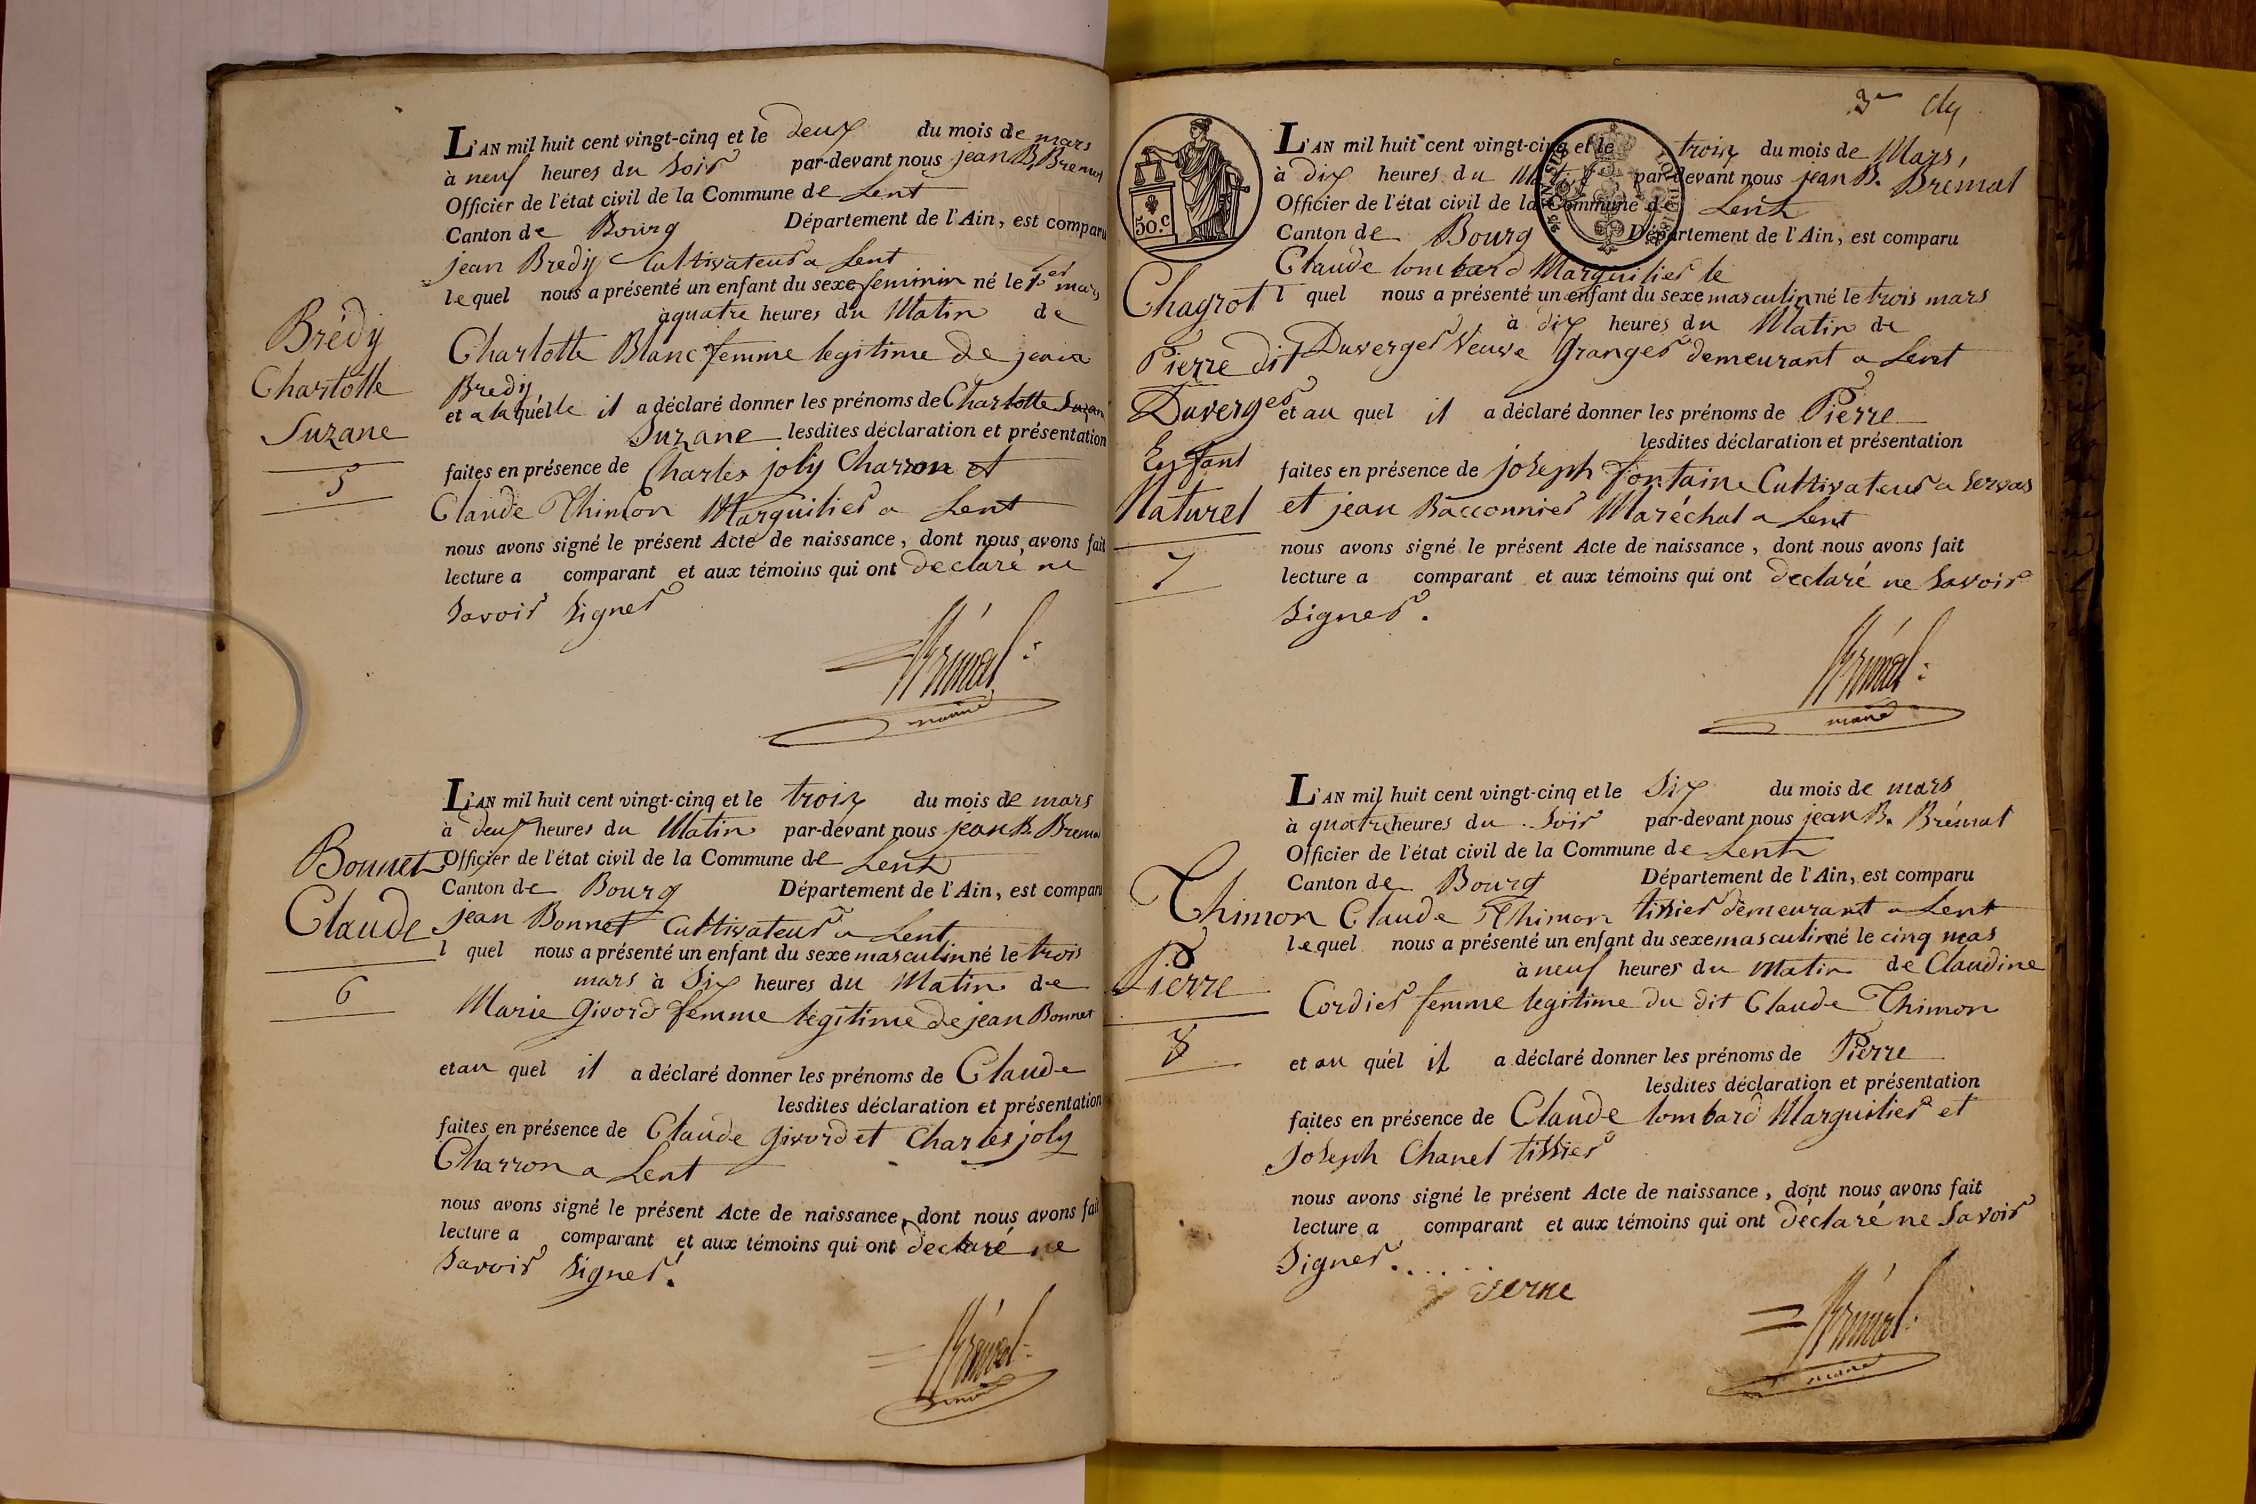 L'AN mil huit cent vingt-cinq et le deux du mois de mars
à neuf heures du soir par-devant nous jean B. Bremal
Officier de l'état civil de la Commune de Lent
Canton de Bourg Département de l'Ain, est comparu
jean Bredy Cultivateur a Lent
lequel nous a présenté un enfant du sexe feminin né le 1er mars
à quatre heures du Matin de
Charlotte Blanc femme legitime de jean
Bredy
et a laquélle il a déclaré donner les prénoms de Charlotte
Suzane lesdites déclaration et présentation
faites en présence de Charles joly Charron et
Claude Thimon Marguilier a Lent
nous avons signé le présent Acte de naissance, dont nous avons fait
lecture a comparant et aux témoins qui ont declaré ne
Savoir Signer
Brémal
maire
Brédy
Charlotte
Suzane
5
L'AN mil huit cent vingt-cinq et le trois du mois de mars
à deux heures du Matin par-devant nous jean B. Bremal
Officier de l'état civil de la Commune de Lent
Canton de Bourg Département de l'Ain, est comparu
jean Bonnet Cultivateur a Lent
l quel nous a présenté un enfant du sexe masculin né le trois
mars à Six heures du Matin de
Marie Givord femme légitime de jean Bonnet
et au quel il a déclaré donner les prénoms de Claude
lesdites déclaration et présentation
faites en présence de Claude Givord et Charles joly
Charron a Lent
nous avons signé le présent Acte de naissance, dont nous avons fait
lecture a comparant et aux témoins qui ont declaré ne
Savoir Signer.
Brémal
maire
Bonnet
Claude
6
3e
50.c
L'AN mil huit cent vingt-cinq et le trois du mois de Mars,
à dix heures du Matin par-devant nous jean B. Bremal
Officier de l'état civil de la Commune de Lent
Canton de Bourg Département de l'Ain, est comparu
Claude lombard Marguilier le
l quel nous a présenté un enfant du sexe masculin né le trois mars
à dix heures du Matin de
Duverger Veuve Granger demeurant a Lent
et au quel il a déclaré donner les prénoms de Pierre
lesdites déclaration et présentation
faites en présence de joseph Fontaine Cultivateur a Servas
et jean Bacconnier Maréchal a Lent
nous avons signé le présent Acte de naissance, dont nous avons fait
lecture a comparant et aux témoins qui ont declaré ne Savoir
Signer.
Brémal
maire
Chagrot
Pierre dit
Duverger
Enfant
Naturel
7
L'AN mil huit cent vingt-cinq et le Six du mois de mars
à quatre heures du Soir par-devant nous jean B. Brémal
Officier de l'état civil de la Commune de Lent
Canton de Bourg Département de l'Ain, est comparu
Claude Thimon tissier demeurant a Lent
lequel nous a présenté un enfant du sexe masculin né le cinq mas
à neuf heures du matin de Claudine
Cordier femme legitime du dit Claude Thimon
et au quél il a déclaré donner les prénoms de Pierre
lesdites déclaration et présentation
faites en présence de Claude lombard Marguilier et
Joseph Chanel tissier
nous avons signé le présent Acte de naissance, dont nous avons fait
lecture a comparant et aux témoins qui ont déclaré ne Savoir
Signer......
Brémal
maire
Thimon
Pierre
8